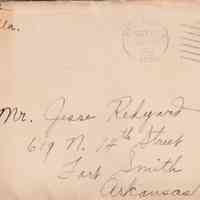 Mr. Jesse Redyard
619 N. 14th Street
Fort Smith
Arkansas